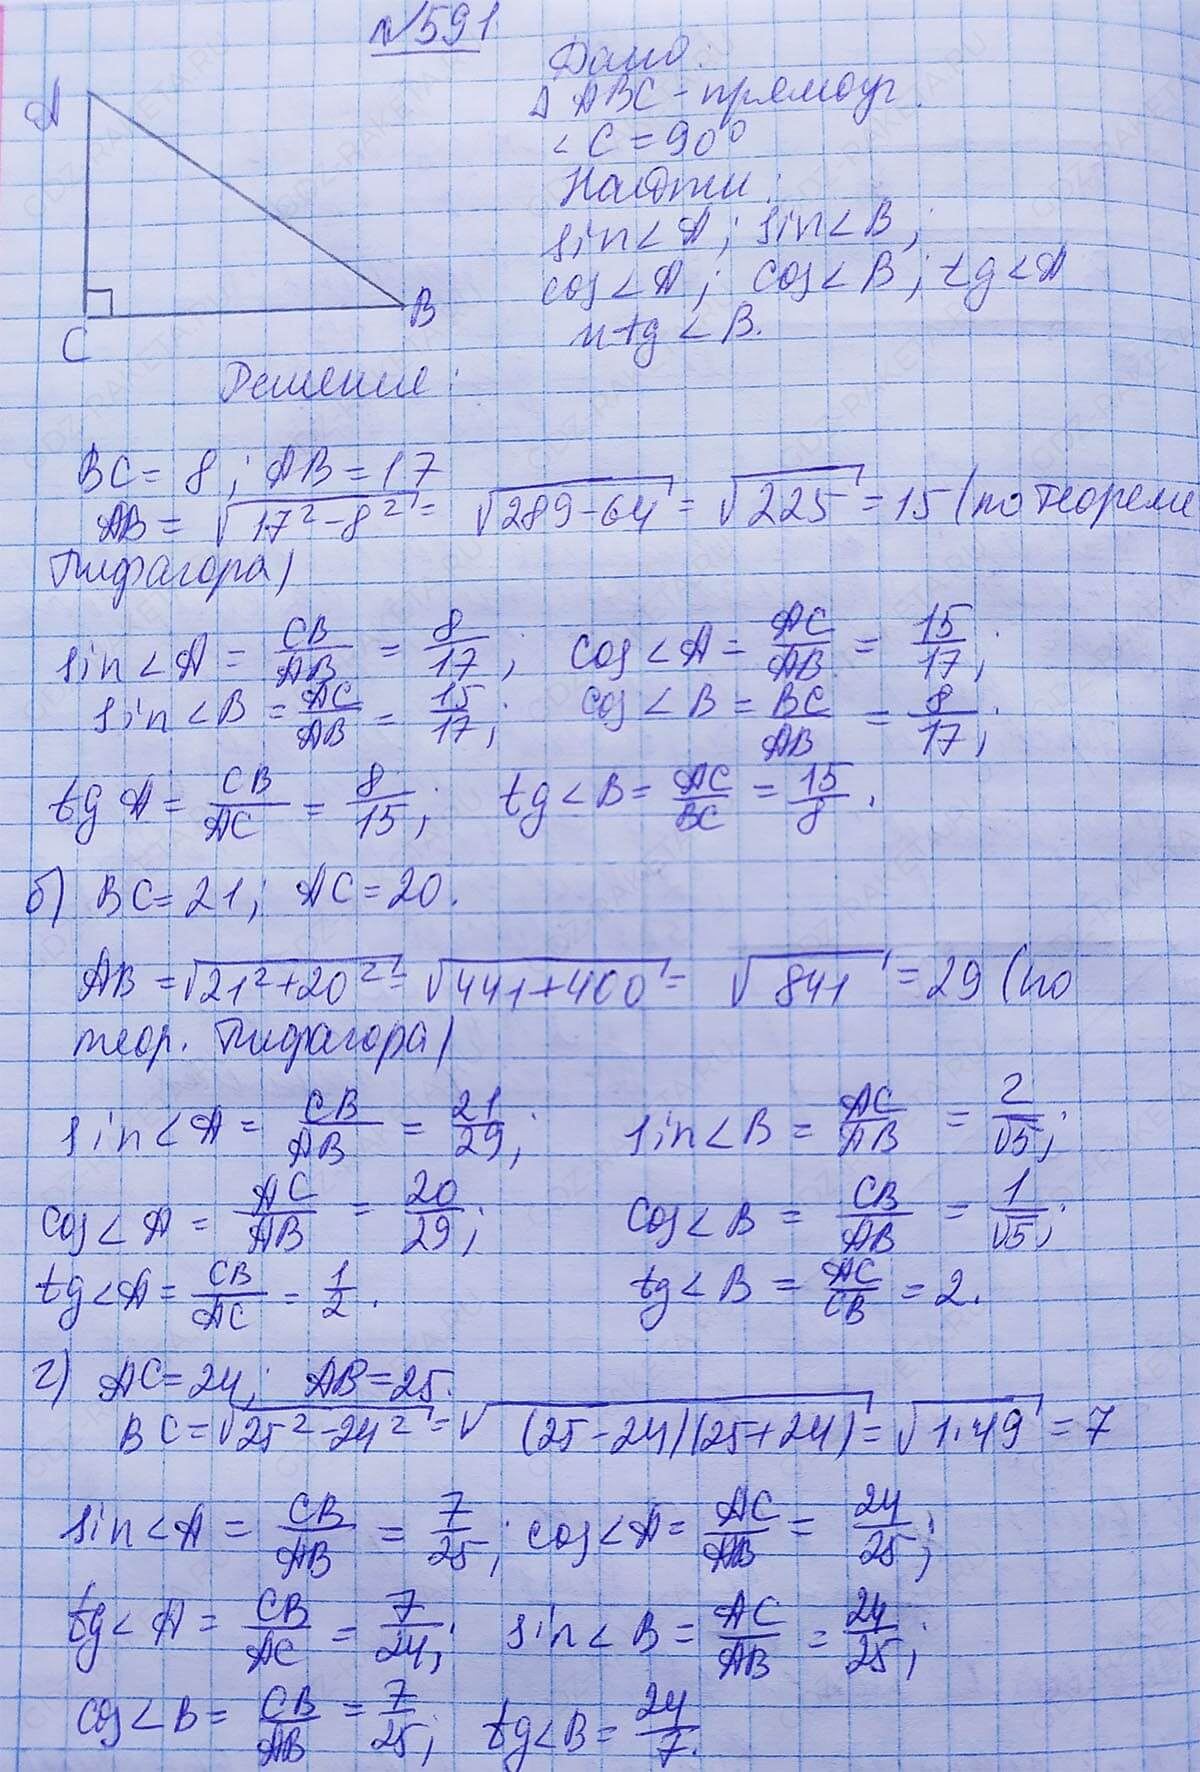 №591
Дано:
Δ ABC - прямоуг.
∠C = 90°
Найти:
sin∠A; sin∠B;
cos∠A; cos∠B; tg∠A
и tg∠B.
A
B
C
Решение:
BC = 8; AB = 17
AB = √(17² - 8²) = √(289 - 64) = √225 = 15 (по теореме
Пифагора)
sin∠A = CB/AB = 8/17; cos∠A = AC/AB = 15/17;
sin∠B = AC/AB = 15/17; cos∠B = BC/AB = 8/17;
tg A = CB/AC = 8/15; tg∠B = AC/BC = 15/8.
б) BC = 21; AC = 20.
AB = √(21² + 20²) = √(441 + 400) = √841 = 29 (по
теор. Пифагора)
sin∠A = CB/AB = 21/29; sin∠B = AC/AB = 2/√5;
cos∠A = AC/AB = 20/29; cos∠B = CB/AB = 1/√5;
tg∠A = CB/AC = 1/2. tg∠B = AC/CB = 2.
г) AC = 24; AB = 25.
BC = √(25² - 24²) = √((25 - 24)(25 + 24)) = √(1·49) = 7
sin∠A = CB/AB = 7/25; cos∠A = AC/AB = 24/25;
tg∠A = CB/AC = 7/24; sin∠B = AC/AB = 24/25;
cos∠B = CB/AB = 7/25; tg∠B = 24/7.